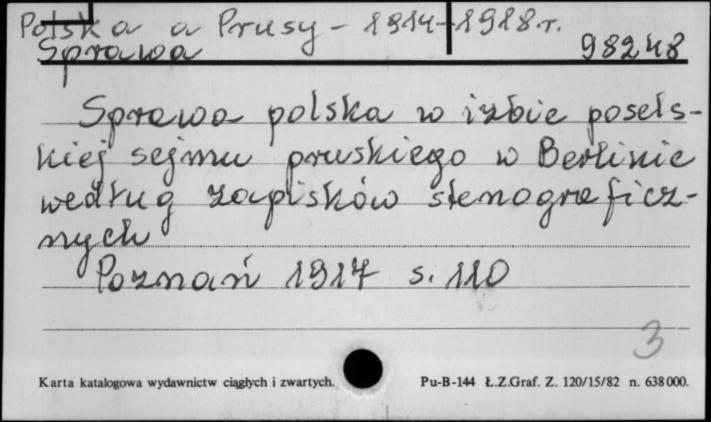 Polska a Prusy - 1914-1918 r.
Sprawa 98248
Sprawa polska w izbie posels-
kiej sejmu pruskiego w Berlinie
według zapisków stenograficz-
nych
Poznań 1917 s. 110
3
Karta katalogowa wydawnictw ciągłych i zwartych. Pu-B-144 Ł.Z.Graf. Z. 120/15/82 n. 638 000.